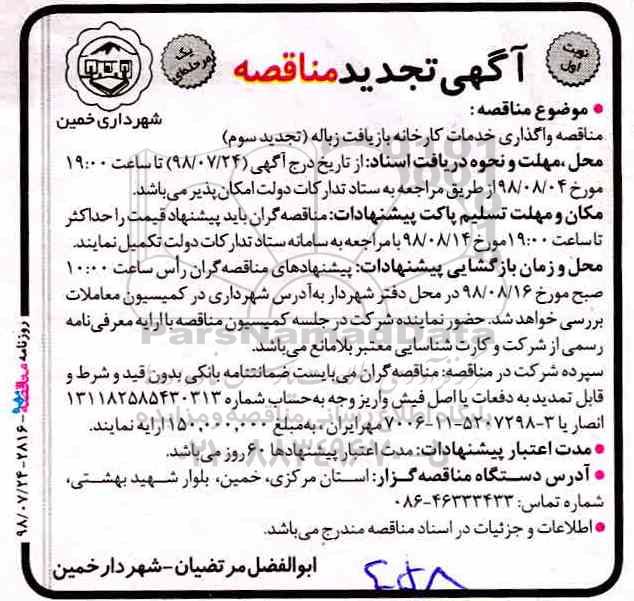 نوبت اول
آگهی تجدید مناقصه
یک مرحله‌ای
شهرداری خمین
• موضوع مناقصه:
مناقصه واگذاری خدمات کارخانه بازیافت زباله (تجدید سوم)
محل، مهلت و نحوه دریافت اسناد: از تاریخ درج آگهی (۹۸/۰۷/۲۴) تا ساعت ۱۹:۰۰
مورخ ۹۸/۰۸/۰۴ از طریق مراجعه به ستاد تدارکات دولت امکان پذیر می‌باشد.
مکان و مهلت تسلیم پاکت پیشنهادات: مناقصه گران باید پیشنهاد قیمت را حداکثر
تا ساعت ۱۹:۰۰ مورخ ۹۸/۰۸/۱۴ با مراجعه به سامانه ستاد تدارکات دولت تکمیل نمایند.
محل و زمان بازگشایی پیشنهادات: پیشنهادهای مناقصه گران رأس ساعت ۱۰:۰۰
صبح مورخ ۹۸/۰۸/۱۶ در محل دفتر شهردار به آدرس شهرداری در کمیسیون معاملات
بررسی خواهد شد. حضور نماینده شرکت در جلسه کمیسیون مناقصه با ارایه معرفی‌نامه
رسمی از شرکت و کارت شناسایی معتبر بلامانع می‌باشد.
سپرده شرکت در مناقصه: مناقصه گران می‌بایست ضمانتنامه بانکی بدون قید و شرط و
قابل تمدید به دفعات یا اصل فیش واریز وجه به حساب شماره ۱۳۱۱۸۲۵۸۵۴۳۰۳۱۳
انصار یا ۳-۵۲۰۷۲۹۸-۱۱-۷۰۰۶ مهر ایران، به مبلغ ۱۵۰,۰۰۰,۰۰۰ ارایه نمایند.
• مدت اعتبار پیشنهادات: مدت اعتبار پیشنهادها ۶۰ روز می‌باشد.
• آدرس دستگاه مناقصه گزار: استان مرکزی، خمین، بلوار شهید بهشتی،
شماره تماس: ۴۶۳۳۳۴۳۳-۰۸۶
• اطلاعات و جزئیات در اسناد مناقصه مندرج می‌باشد.
ابوالفضل مرتضیان-شهردار خمین
روزنامه مناقصه ۲۸۱۶-۹۸/۰۷/۲۴
ParsNamadData
پایگاه اطلاع رسانی مناقصه و مزایده
۰۲۱-۸۸۳۴۹۶۷۰